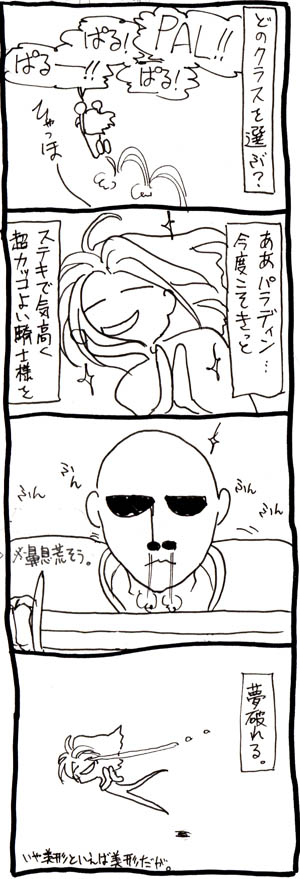 どのクラスを選ぶ？
PAL!!
ぱる!
ぱる!!
ぱる!
ひゃっほー
ああパラディン…
今度こそきっと
ステキで気高く
超カッコよい騎士様を
ふん
ふん
ふん
ふん
※鼻息荒そう。
夢破れる。
いや美形といえば美形だが。